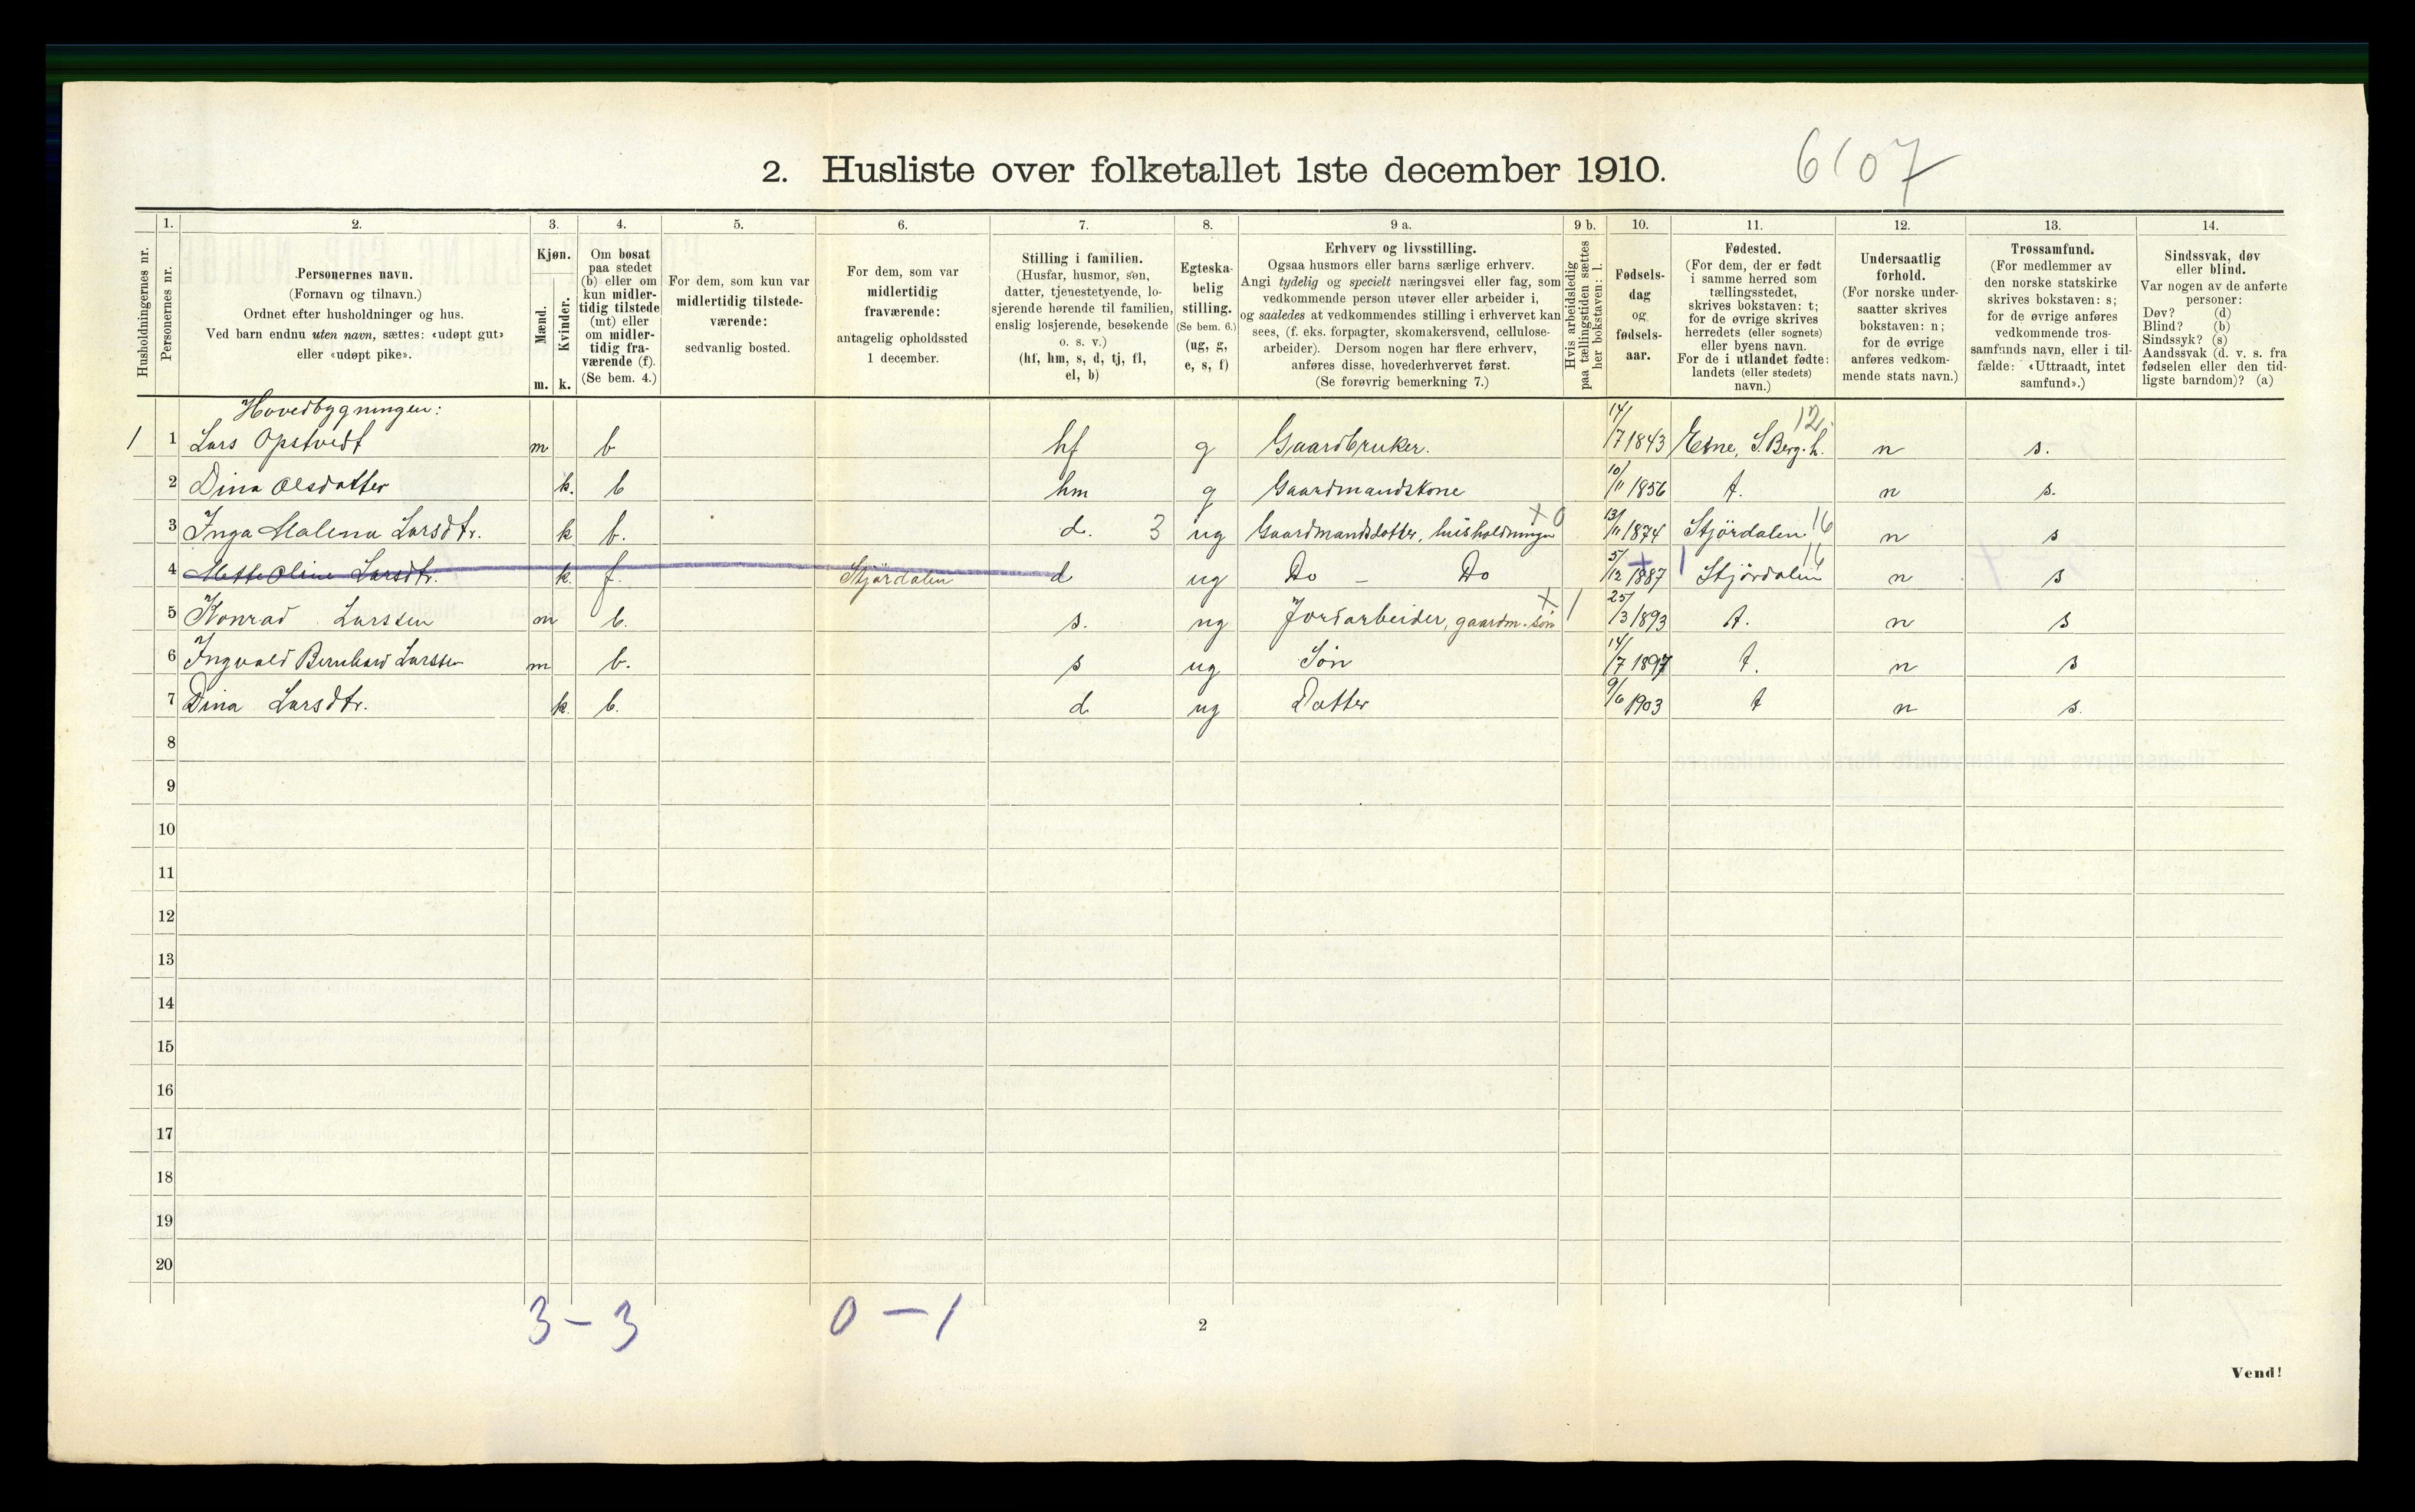 2. Husliste over folketallet 1ste december 1910.
6107
Husholdningernes nr.
1.
Personernes nr.
2.
Personernes navn.
(Fornavn og tilnavn.)
Ordnet efter husholdninger og hus.
Ved barn endnu uten navn, sættes: «udøpt gut»
eller «udøpt pike».
3.
Kjøn.
Mænd.
Kvinder.
m. k.
4.
Om bosat
paa stedet
(b) eller om
kun midler-
tidig tilstede
(mt) eller
om midler-
tidig fra-
værende (f).
(Se bem. 4.)
5.
For dem, som kun var
midlertidig tilstede-
værende:
sedvanlig bosted.
6.
For dem, som var
midlertidig
fraværende:
antagelig opholdssted
1 december.
7.
Stilling i familien.
(Husfar, husmor, søn,
datter, tjenestetyende, lo-
sjerende hørende til familien,
enslig losjerende, besøkende
o. s. v.)
(hf, hm, s, d, tj, fl,
el, b)
8.
Egteska-
belig
stilling.
(Se bem. 6.)
(ug, g,
e, s, f)
9 a.
Erhverv og livsstilling.
Ogsaa husmors eller barns særlige erhverv.
Angi tydelig og specielt næringsvei eller fag, som
vedkommende person utøver eller arbeider i,
og saaledes at vedkommendes stilling i erhvervet kan
sees, (f. eks. forpagter, skomakersvend, cellulose-
arbeider). Dersom nogen har flere erhverv,
anføres disse, hovederhvervet først.
(Se forøvrig bemerkning 7.)
9 b.
Hvis arbeidsledig
paa tællingstiden sættes
her bokstaven: l.
10.
Fødsels-
dag
og
fødsels-
aar.
11.
Fødested.
(For dem, der er født
i samme herred som
tællingsstedet,
skrives bokstaven: t;
for de øvrige skrives
herredets (eller sognets)
eller byens navn.
For de i utlandet fødte:
landets (eller stedets)
navn.)
12.
Undersaatlig
forhold.
(For norske under-
saatter skrives
bokstaven: n;
for de øvrige
anføres vedkom-
mende stats navn.)
13.
Trossamfund.
(For medlemmer av
den norske statskirke
skrives bokstaven: s;
for de øvrige anføres
vedkommende tros-
samfunds navn, eller i til-
fælde: «Uttraadt, intet
samfund».)
14.
Sindssvak, døv
eller blind.
Var nogen av de anførte
personer:
Døv? (d)
Blind? (b)
Sindssyk? (s)
Aandssvak (d. v. s. fra
fødselen eller den tid-
ligste barndom)? (a)
Hovedbygningen:
1 1 Lars Opstvedt m b hf g Gaardbruker. 14/7 1843 Etne, S. Berg. h. 12. n s.
2 Dina Olsdatter k. b hm g Gaardmandskone 10/11 1856 t. n s.
3 Inga Malena Larsdtr. k b. d. 3 ug Gaardmandsdatter, husholdningen x 0 13/11 1874 Stjördalen 16 n s
4 Mette Oline Larsdtr. k. f. Stjördalen d ug Do - Do 5/12 1887 Stjördalen 16 n s
5 Konrad Larssen m b. s. ug Jordarbeider, gaardm. søn x 1 25/3 1893 t. n s
6 Ingvald Bernhard Larssen m b. s ug Søn 14/7 1897 t. n s
7 Dina Larsdtr. k. b. d ug Datter 9/6 1903 t n s.
8
9
10
11
12
13
14
15
16
17
18
19
20
3 - 3 0 - 1
2
Vend!